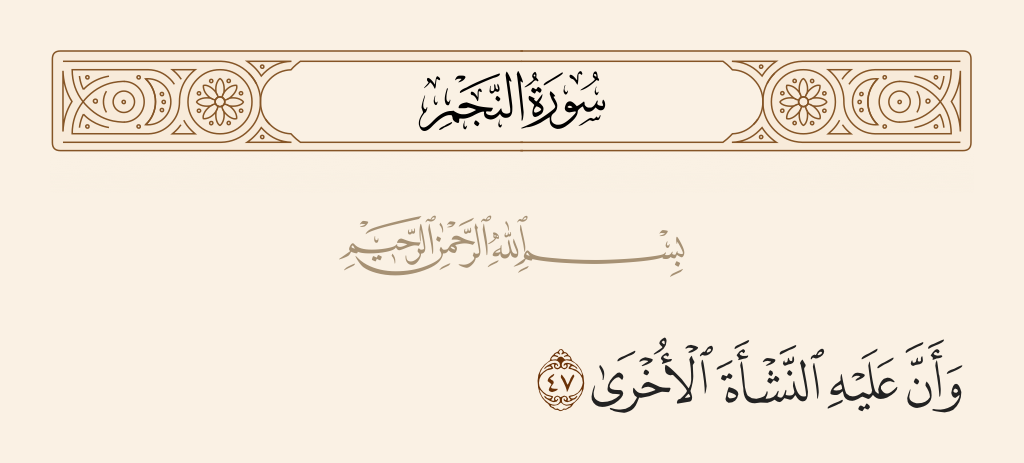 سُورَةُ النَّجْمِ
بِسْمِ ٱللَّهِ ٱلرَّحْمَٰنِ ٱلرَّحِيمِ
وَأَنَّ عَلَيْهِ ٱلنَّشْأَةَ ٱلْأُخْرَىٰ ٤٧